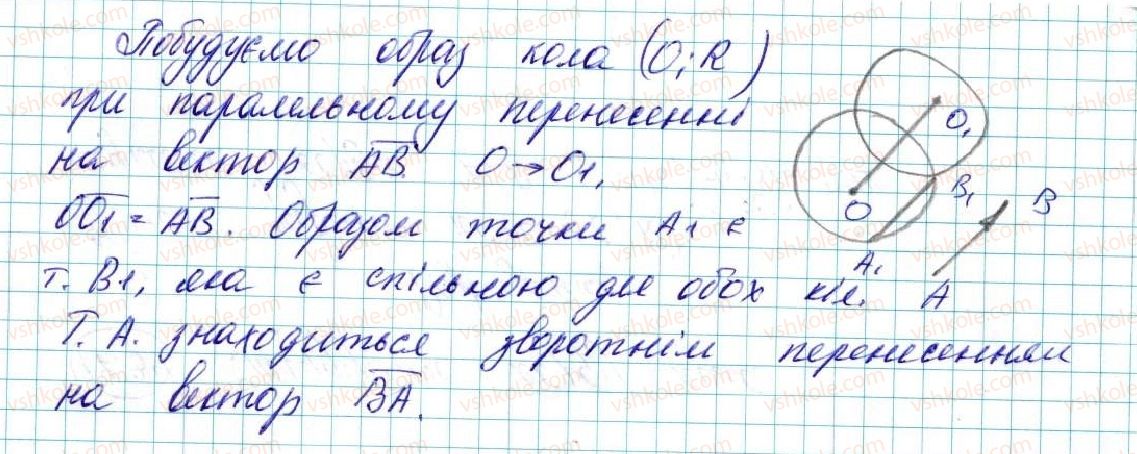 Побудуємо образ кола (O; R)
при паралельному перенесенні
на вектор AB. O → O1,
OO1 = AB. Образом точки A1 є
т. B1, яка є спільною для обох кіл.
Т. A. знаходиться зворотнім перенесенням
на вектор BA.
O1
B1
B
O
A1
A